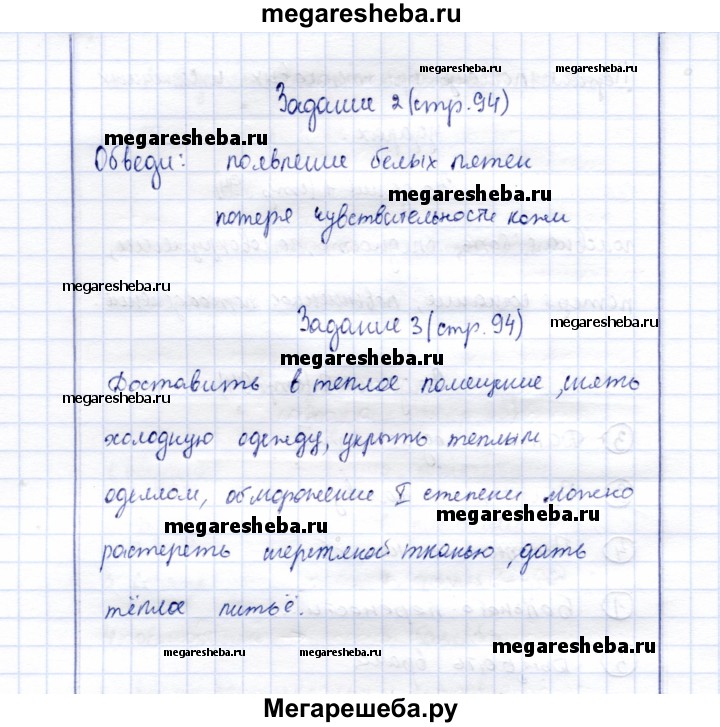 megaresheba.ru
megaresheba.ru
Задание 2 (стр. 94)
megaresheba.ru
Обведи: появление белых пятен
megaresheba.ru
потеря чувствительности кожи
megaresheba.ru
Задание 3 (стр. 94)
megaresheba.ru
megaresheba.ru
Доставить в теплое помещение, снять
megaresheba.ru
холодную одежду, укрыть теплым
одеялом, обморожение I степени можно
megaresheba.ru
megaresheba.ru
растереть шерстяной тканью, дать
тёплое питьё.
megaresheba.ru
megaresheba.ru
megaresheba.ru
Мегарешеба.ру